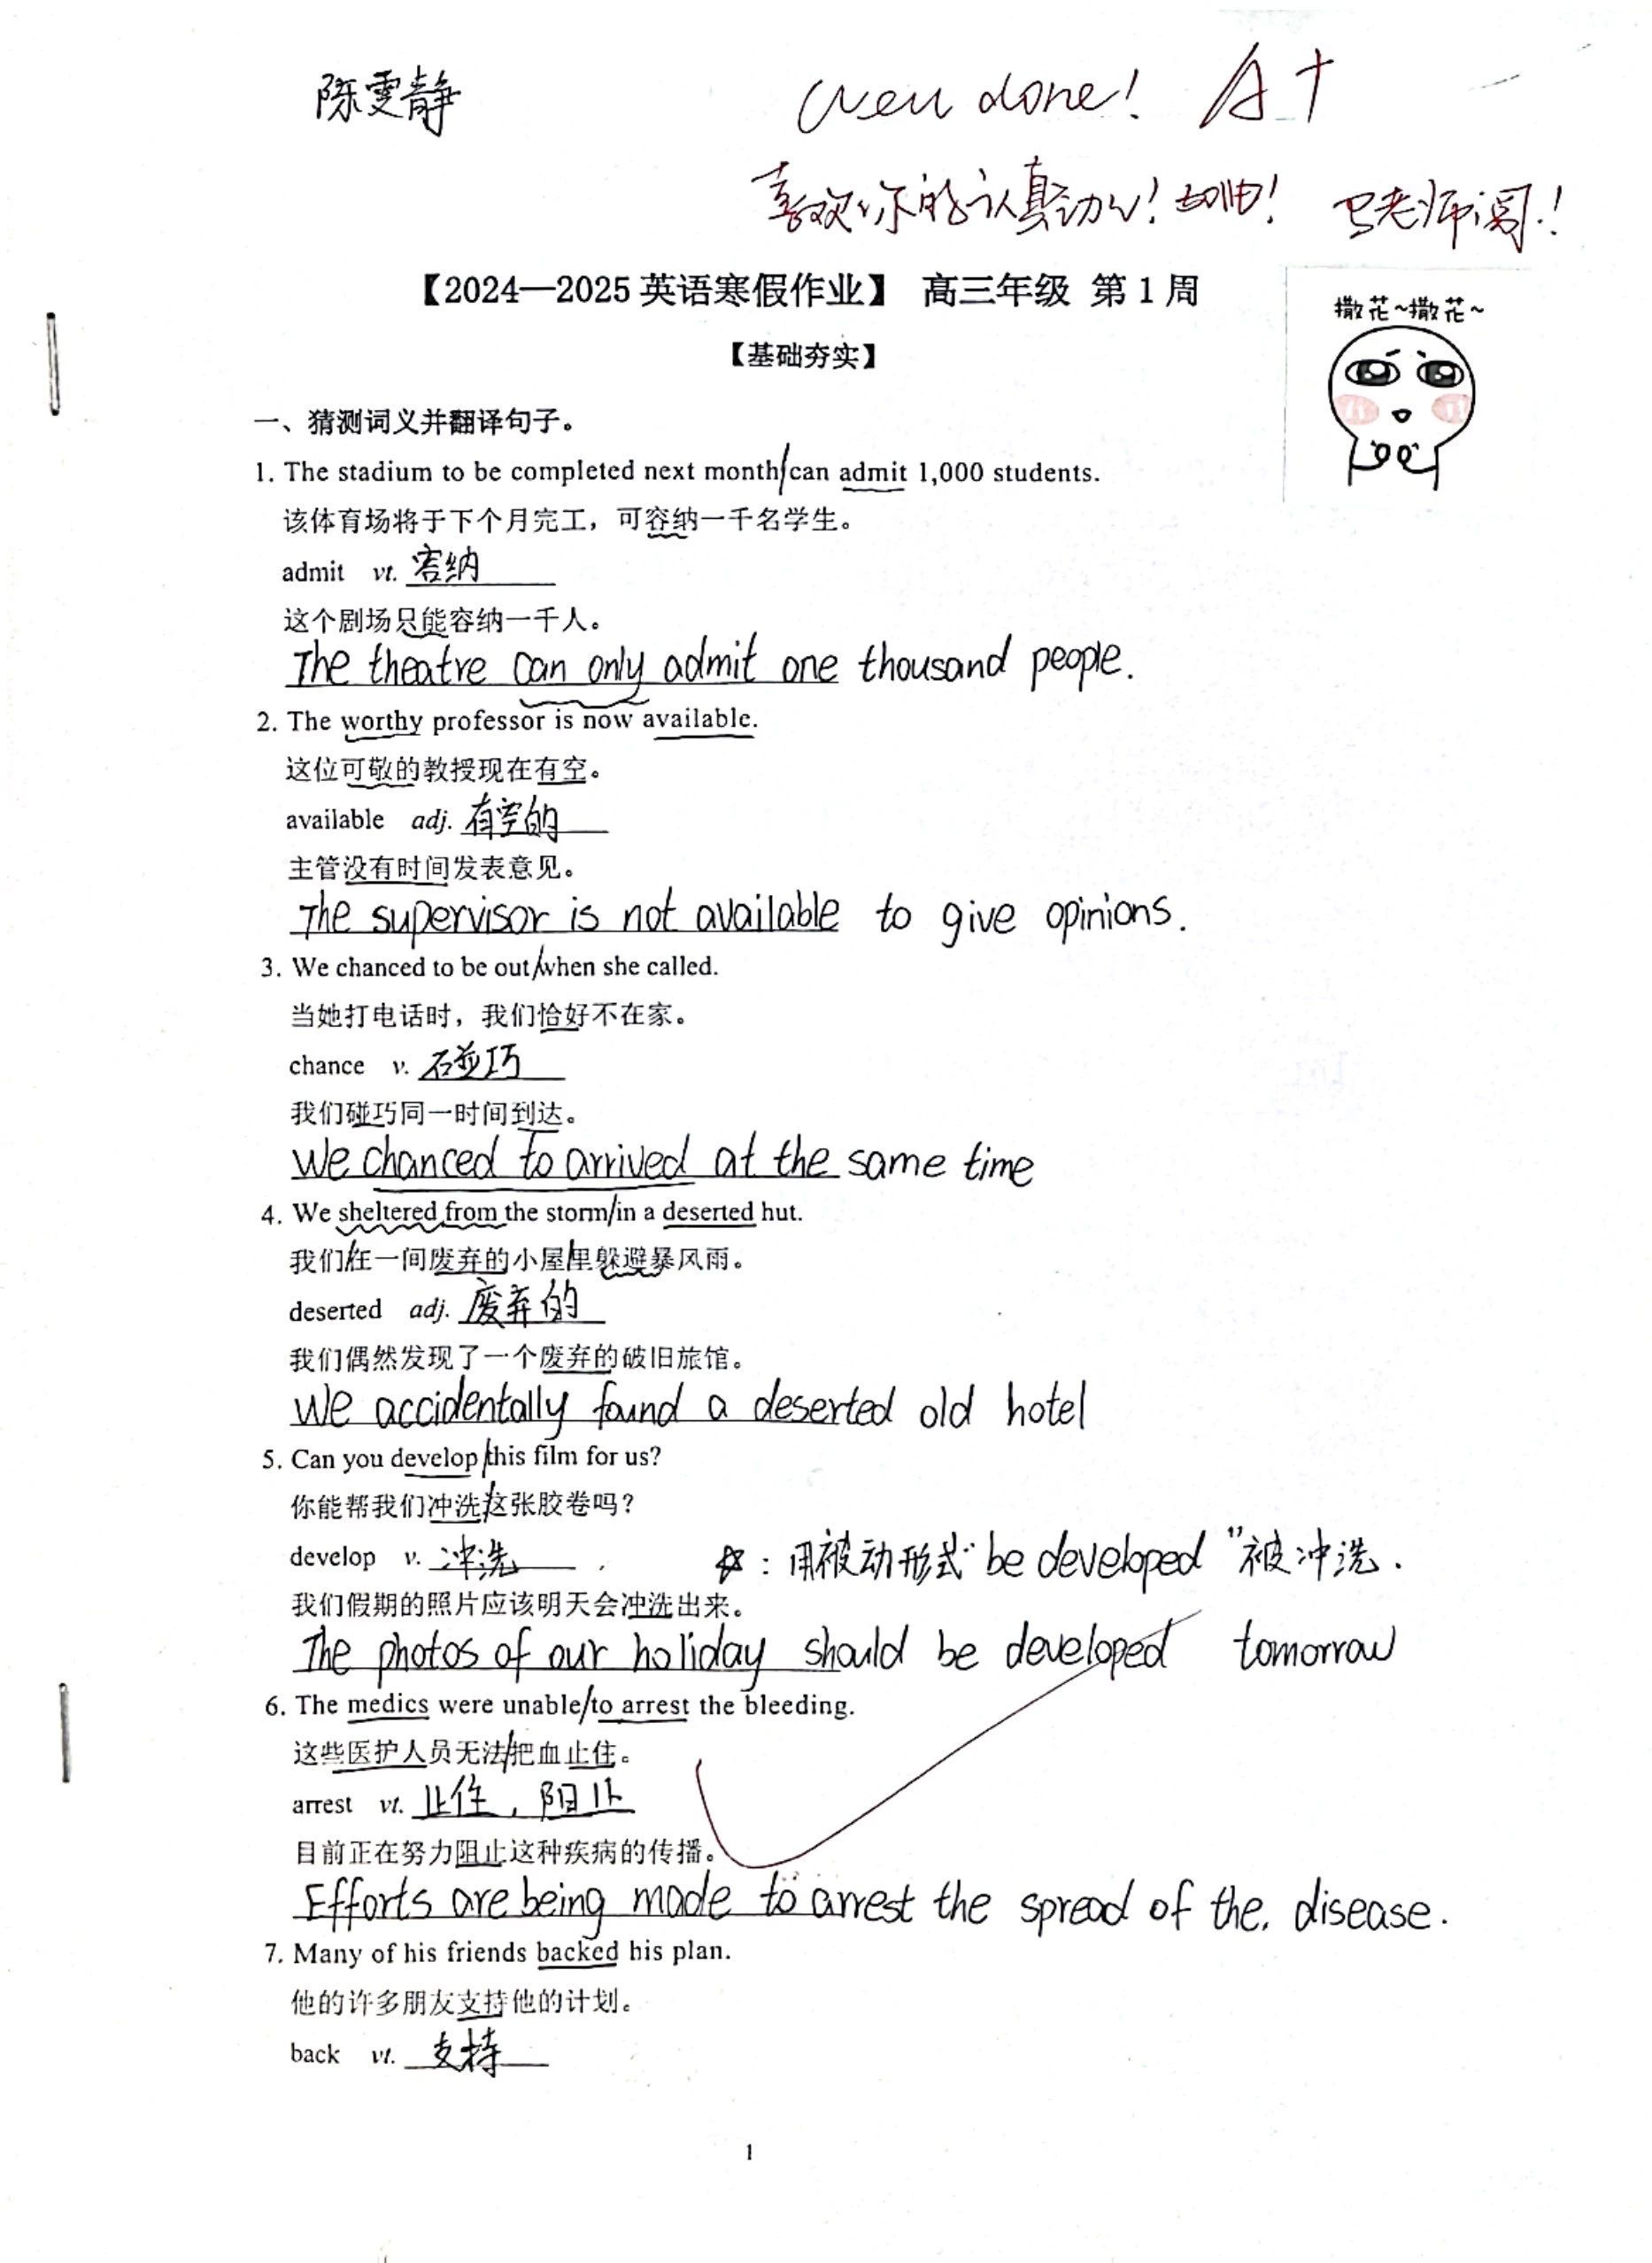 陈雯静
Well done! A+
喜欢你的认真劲儿!
卫老师阅.!
【2024—2025英语寒假作业】 高三年级 第1周
撒花~撒花~
【基础夯实】
一、猜测词义并翻译句子。
1. The stadium to be completed next month/can admit 1,000 students.
该体育场将于下个月完工，可容纳一千名学生。
admit vt. 容纳
这个剧场只能容纳一千人。
The theatre can only admit one thousand people.
2. The worthy professor is now available.
这位可敬的教授现在有空。
available adj. 有空的
主管没有时间发表意见。
The supervisor is not available to give opinions.
3. We chanced to be out/when she called.
当她打电话时，我们恰好不在家。
chance v. 碰巧
我们碰巧同一时间到达。
We chanced to arrived at the same time
4. We sheltered from the storm/in a deserted hut.
我们/在一间废弃的小屋/里躲避暴风雨。
deserted adj. 废弃的
我们偶然发现了一个废弃的破旧旅馆。
We accidentally found a deserted old hotel
5. Can you develop/this film for us?
你能帮我们冲洗/这张胶卷吗？
develop v. 冲洗
☆：用被动形式“be developed”被冲洗.
我们假期的照片应该明天会冲洗出来。
The photos of our holiday should be developed tomorrow
6. The medics were unable/to arrest the bleeding.
这些医护人员无法/把血止住。
arrest vt. 止住，阻止
目前正在努力阻止这种疾病的传播。
Efforts are being made to arrest the spread of the. disease.
7. Many of his friends backed his plan.
他的许多朋友支持他的计划。
back vt. 支持
1